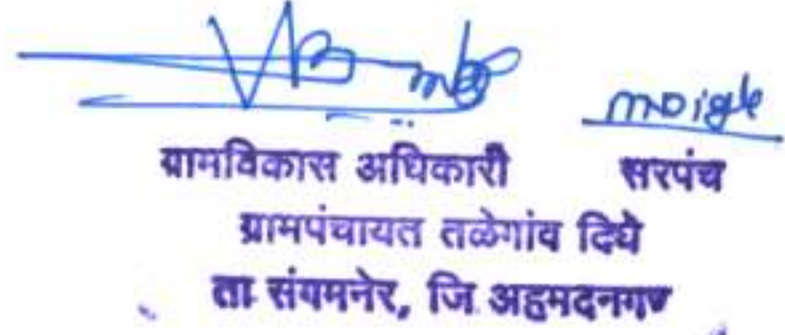 ग्रामविकास अधिकारी सरपंच
ग्रामपंचायत तळेगांव दिघे
ता संगमनेर, जि अहमदनगर